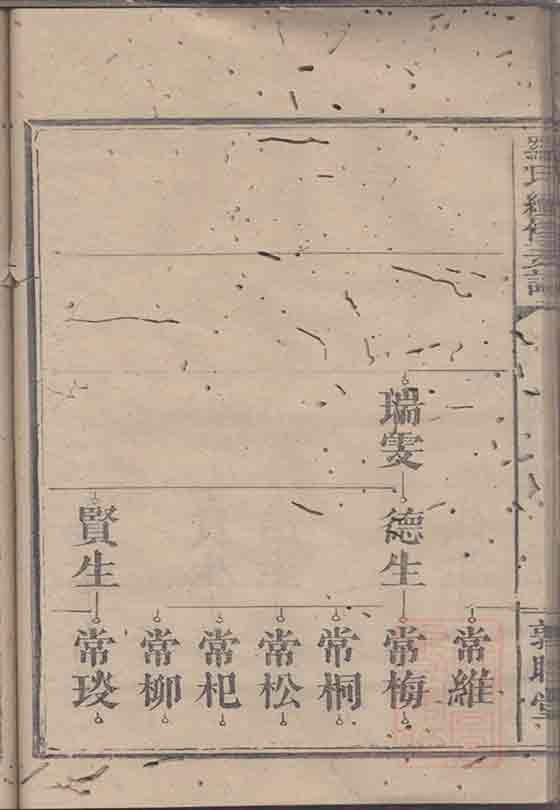 氏續修支譜
瑞雯
德生
賢生
常維
常梅
常桐
常松
常杞
常柳
常琰
敦睦堂